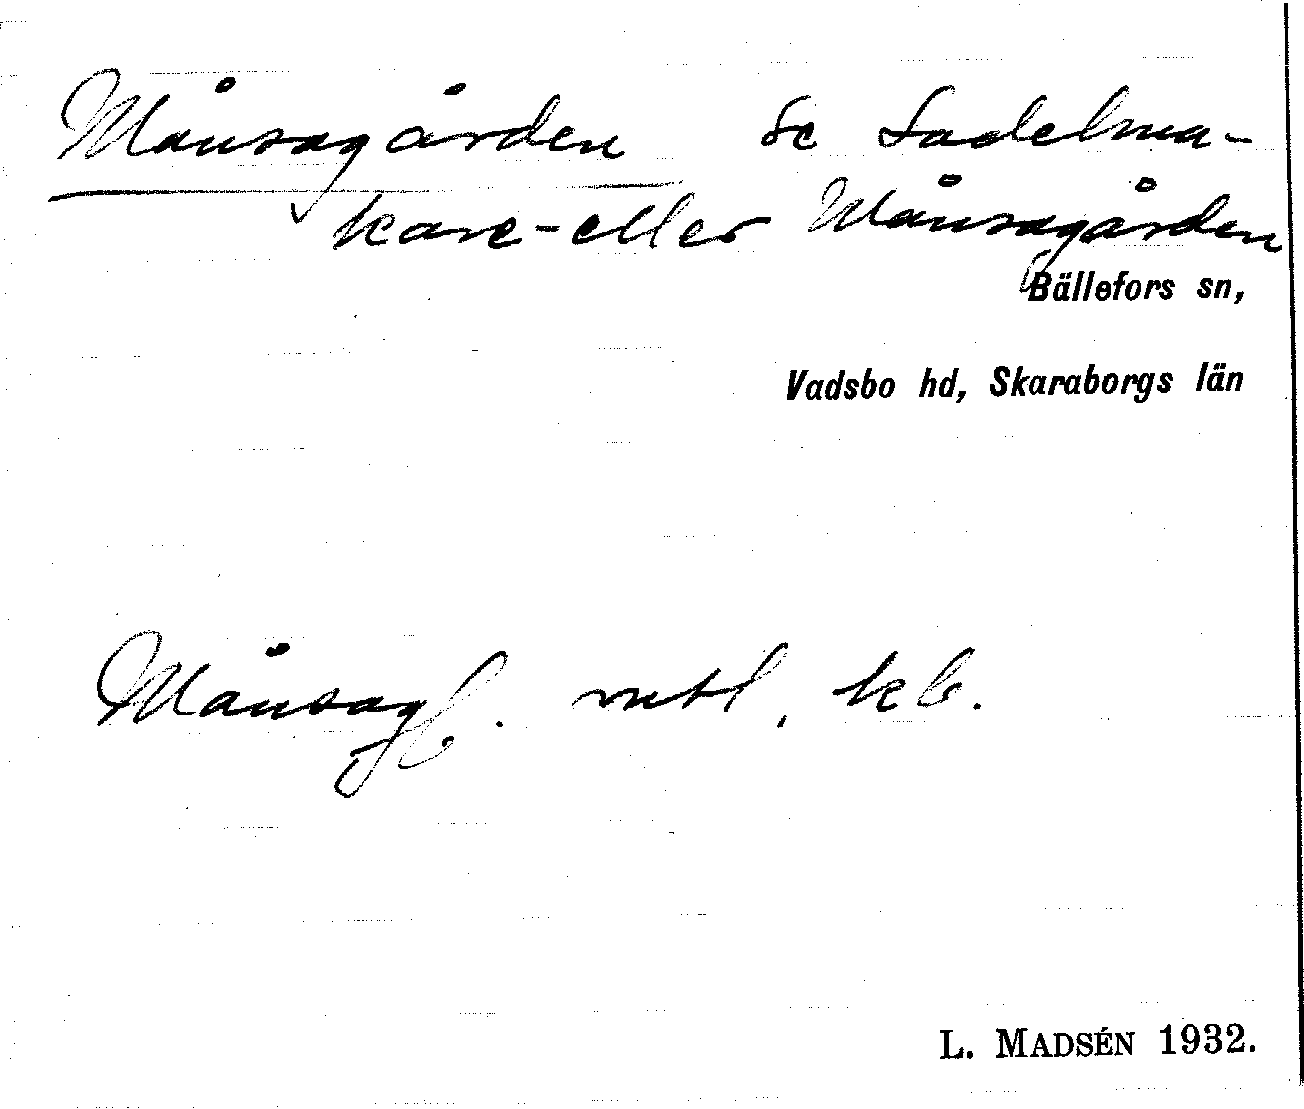 Månsagården Se Sadelma-
kare-eller Månsagården
Bällefors sn,
Vadsbo hd, Skaraborgs län
Månsag. mtl, kb.
L. MADSÉN 1932.